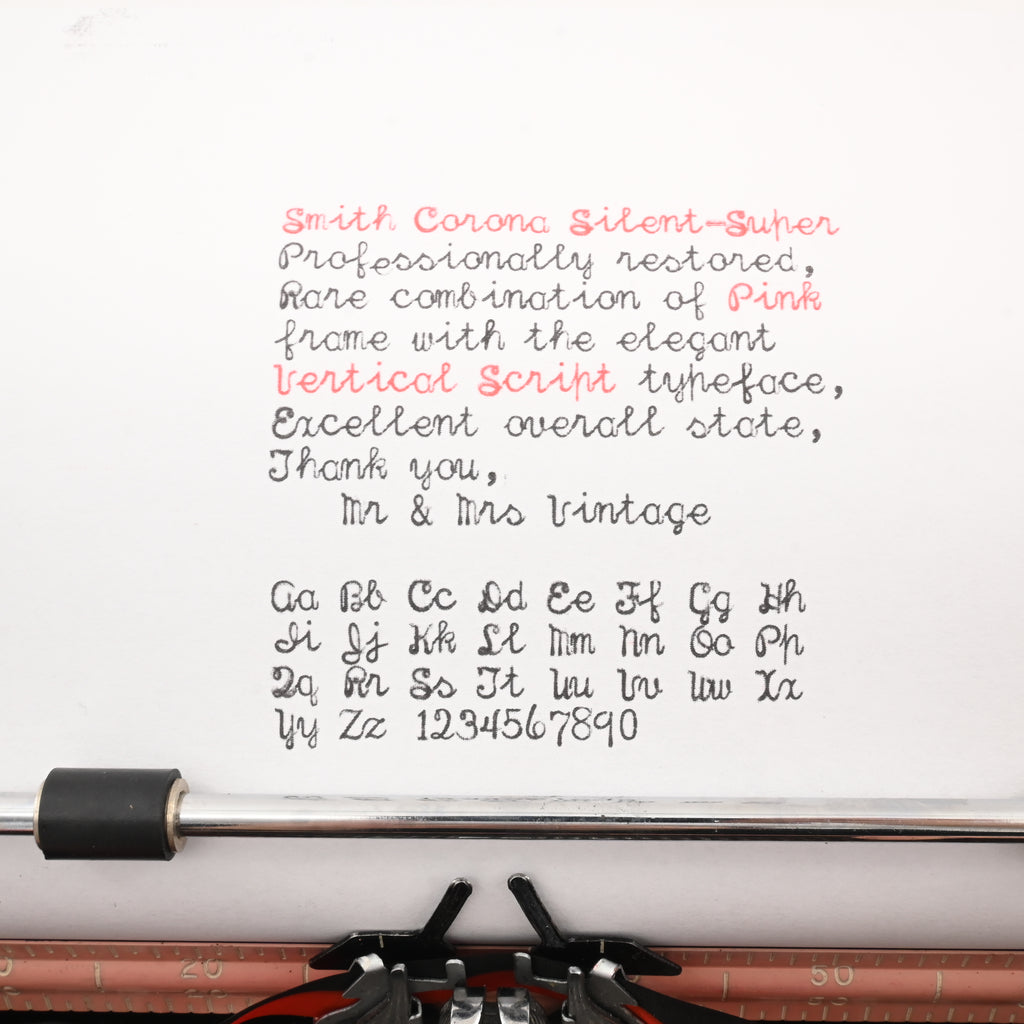 Smith Corona Silent-Super
Professionally restored,
Rare combination of Pink
frame with the elegant
Vertical Script typeface,
Excellent overall state,
Thank you,
Mr & Mrs Vintage
Aa Bb Cc Dd Ee Ff Gg Hh
Ii Jj Kk Ll Mm Nn Oo Pp
Qq Rr Ss Tt Uu Vv Ww Xx
Yy Zz 1234567890
20 50